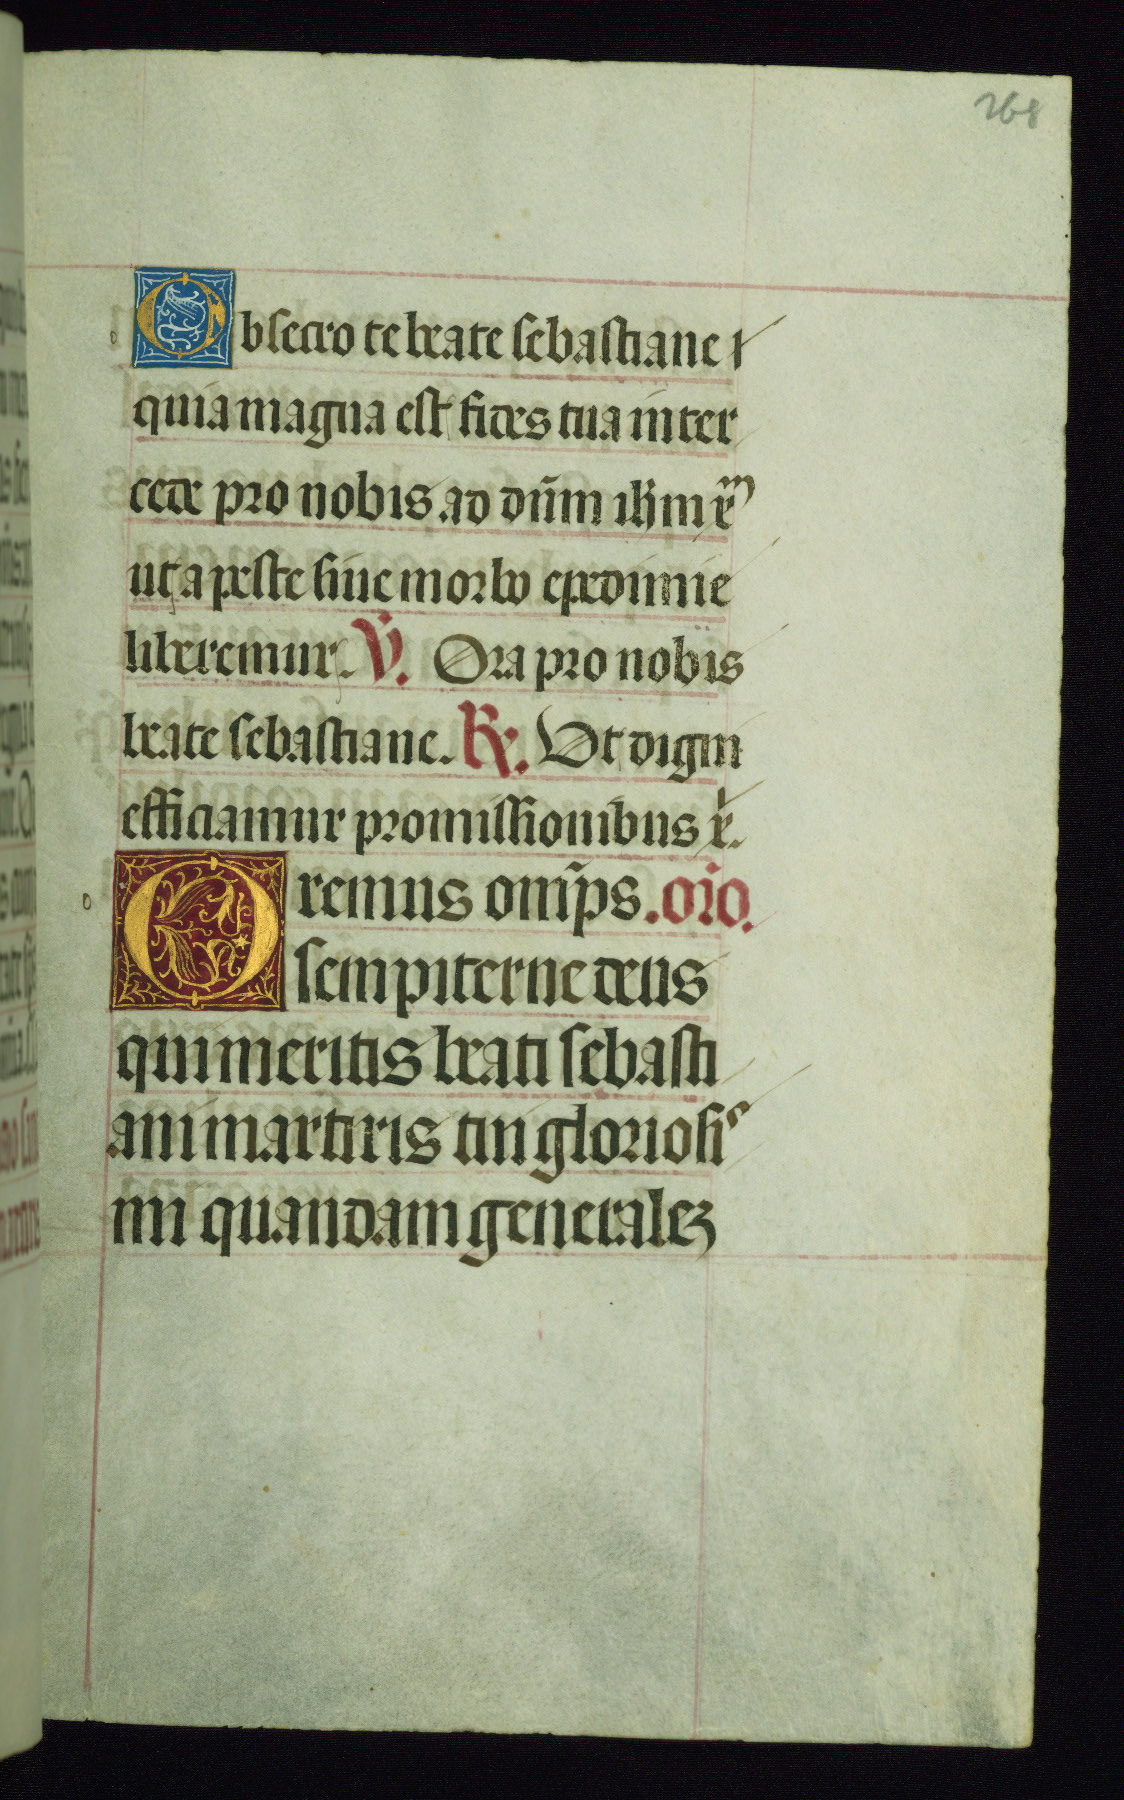 268
Obsecro te beate sebastiane
quia magna est fides tua inter
cede pro nobis ad dñm ihm xp̃m
ut a peste siue morbo epedimie
liberemur. V̾. Ora pro nobis
beate sebastiane. R̾. Vt digni
efficiamur promissionibus x̃.
Oremus omp̃s. or̃o.
sempiterne deus
qui meritis beati sebasti
ani martiris tui gloriosis
mi quandam generalez